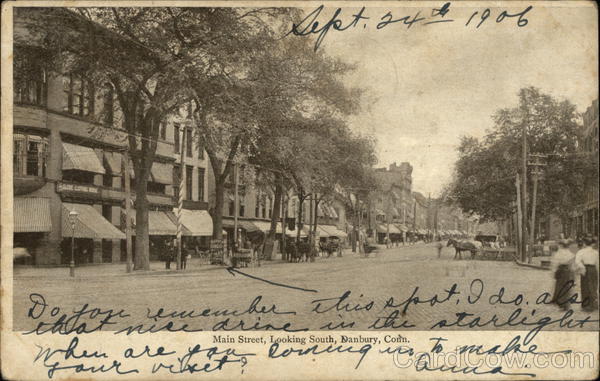 Sept. 24th 1906
Do you remember this spot, I do. also
that nice drive in the starlight
Main Street, Looking South, Danbury, Conn.
When are you coming in to make
your visit? Anna.
CardCow.com